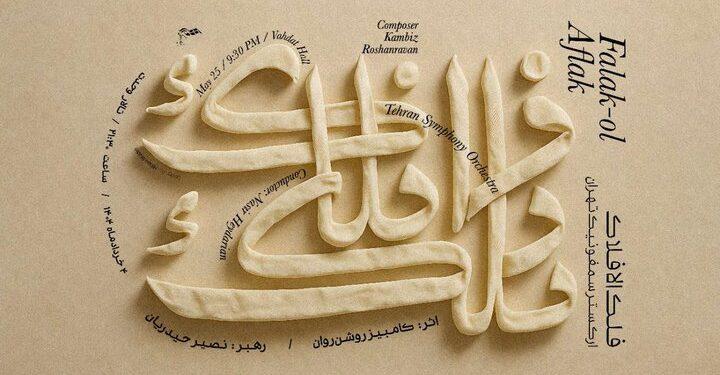 Falak-ol
Aflak
Composer
Kambiz
Roshanravan
May 25 / 9:30 PM / Vahdat Hall
Tehran Symphony Orchestra
Conductor: Nasir Heydarian
فلک الافلاک
ارکستر سمفونیک تهران
۴ خردادماه ۱۴۰۴ / ساعت ۲۱:۳۰ / تالار وحدت
اثر: کامبیز روشن‌روان / رهبر: نصیر حیدریان
فلک الافلاک